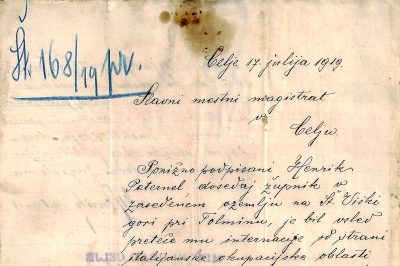 Št. 168/19 pr.
Celje 17. julija 1919.
Slavni mestni magistrat
v
Celju.
Ponižno podpisani Henrik
Paternel dosedaj župnik v
zasedenem ozemlju na Št. Viški
gori pri Tolminu, je bil vsled
preteče mu internacije od strani
italijanske okupacijske oblasti